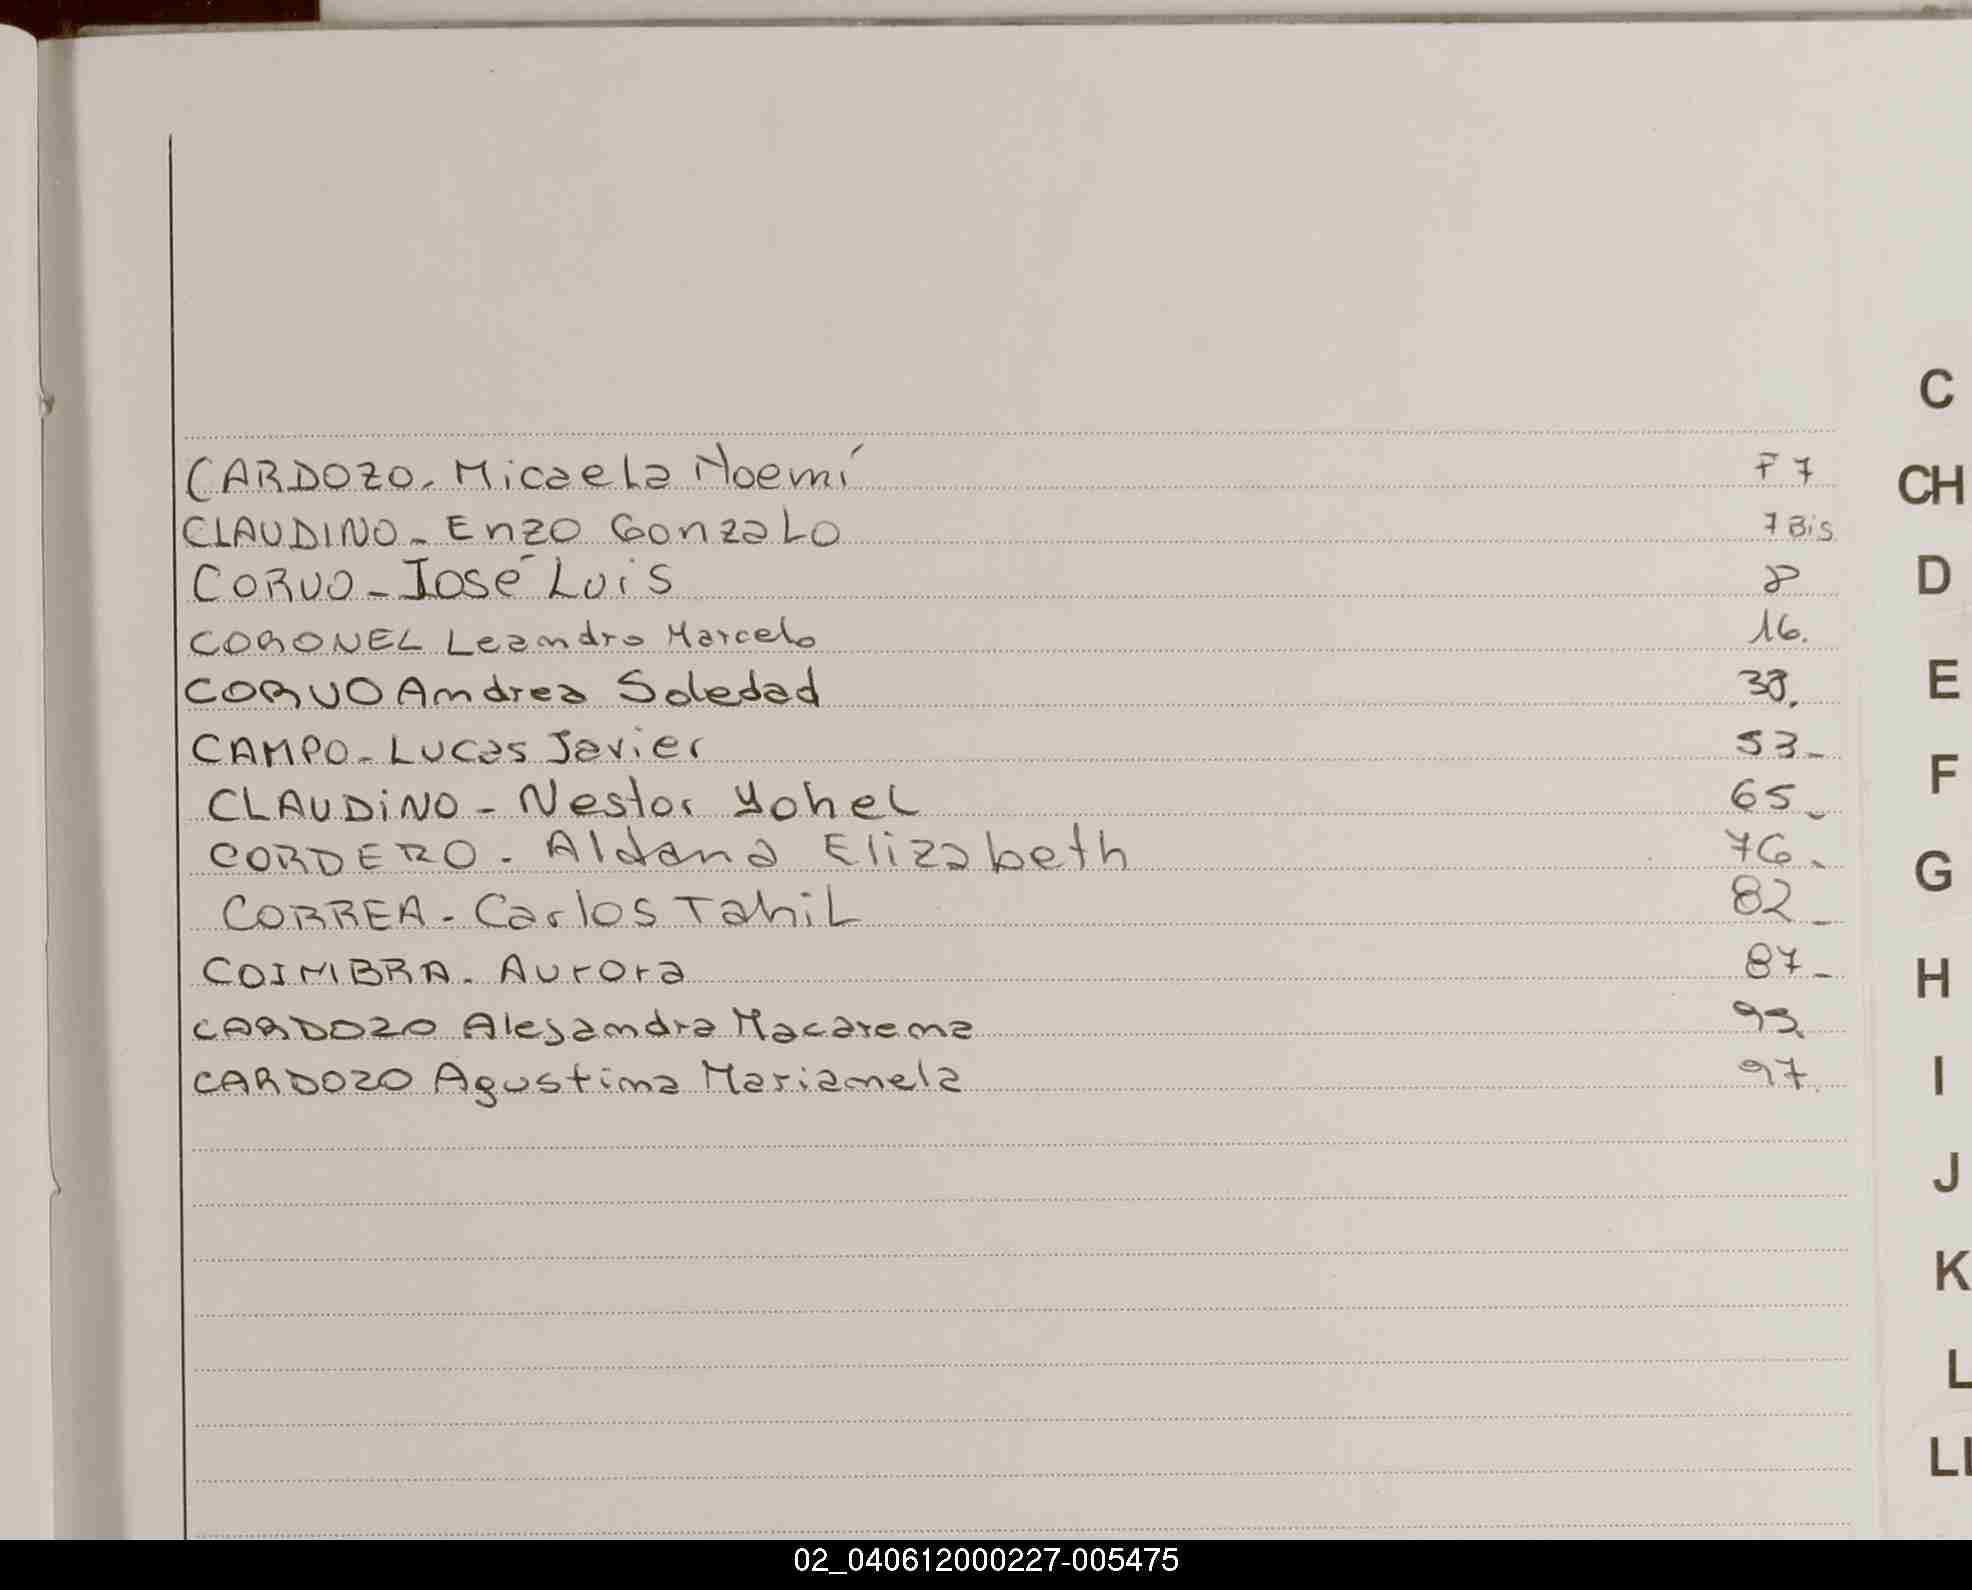 CARDOZO. Micaela Noemí F 7
CLAUDINO - Enzo Gonzalo 7 Bis
CORVO - José Luis 8
CORONEL Leandro Marcelo 16.
CORVO Andrea Soledad
CAMPO - Lucas Javier 53-
CLAUDiNO - Nestor Yohel 65-
CORDERO - Aldana Elizabeth 76.
CORREA - Carlos Tahil 82-
COIMBRA - Aurora 87-
CARDOZO Alejandra Macarena
CARDOZO Agustina Marianela 97.
C
CH
D
E
F
G
H
I
J
K
L
LL
02_040612000227-005475